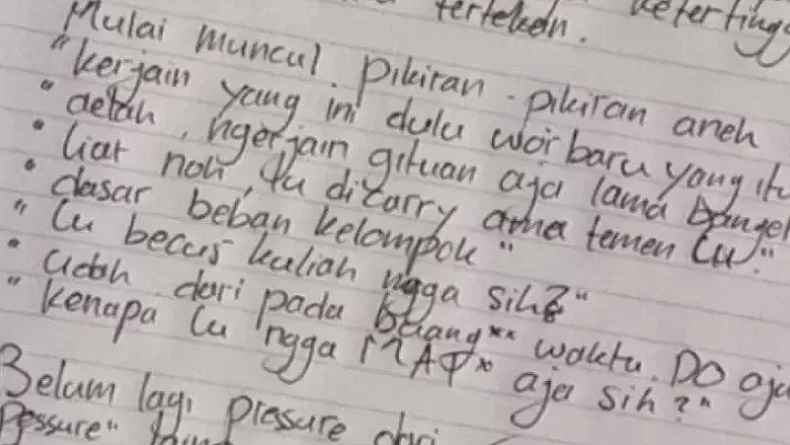 tertekan. ketertingg
Mulai muncul pikiran-pikiran aneh
"kerjain yang ini dulu woi baru yang itu
"aelah, ngerjain gituan aja lama banget
"liat noh, lu dicarry ama temen lu."
"dasar beban kelompok"
"lu becus kuliah ngga sih?"
"udah dari pada buang** waktu. DO aja
"kenapa lu ngga MAT* aja sih?"
Belum lagi pressure dari
pressure"